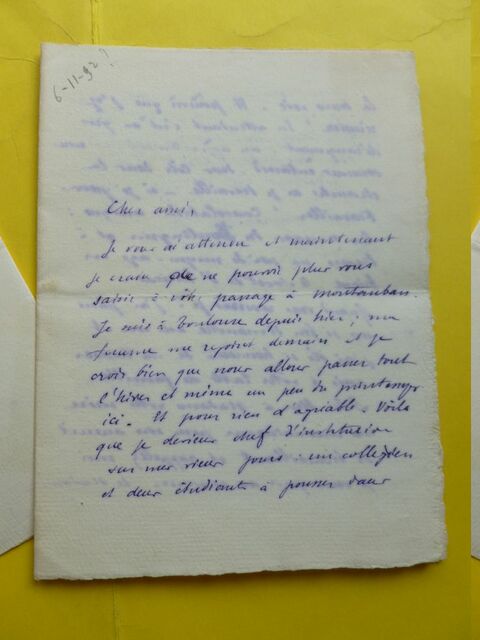 6-11-92?
Cher ami,
Je vous ai attendu et maintenant
je crains de ne pouvoir plus vous
saisir à votre passage à Montauban.
Je suis à Toulouse depuis hier ; ma
femme me rejoint demain et je
crois bien que nous allons passer tout
l'hiver et même un peu du printemps
ici. Et pour rien d'agréable. Voilà
que je deviens chef d'institution
sur mes vieux jours : un collégien
et deux étudiants à pousser dans